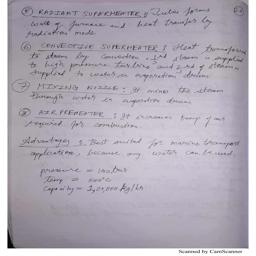 ⑤ RADIANT SUPERHEATER : Tubes forms
wall of furnace and heat transfer by
radiation mode.
⑥ CONVECTIVE SUPERHEATER : Heat transferred
to steam by convection. steam is supplied
to high pressure turbine and of steam is
supplied to water in evaporation drum.
⑦ MIXING NOZZLE : It mixes the steam
through water in evaporation drum.
⑧ AIR PREHEATER : It increases temp of air
required for combustion.
Advantages : Best suited for marine transport
application, because any water can be used.
pressure = 140 bar
Temp = 500°C
Capacity = kg/hr
Scanned by CamScanner